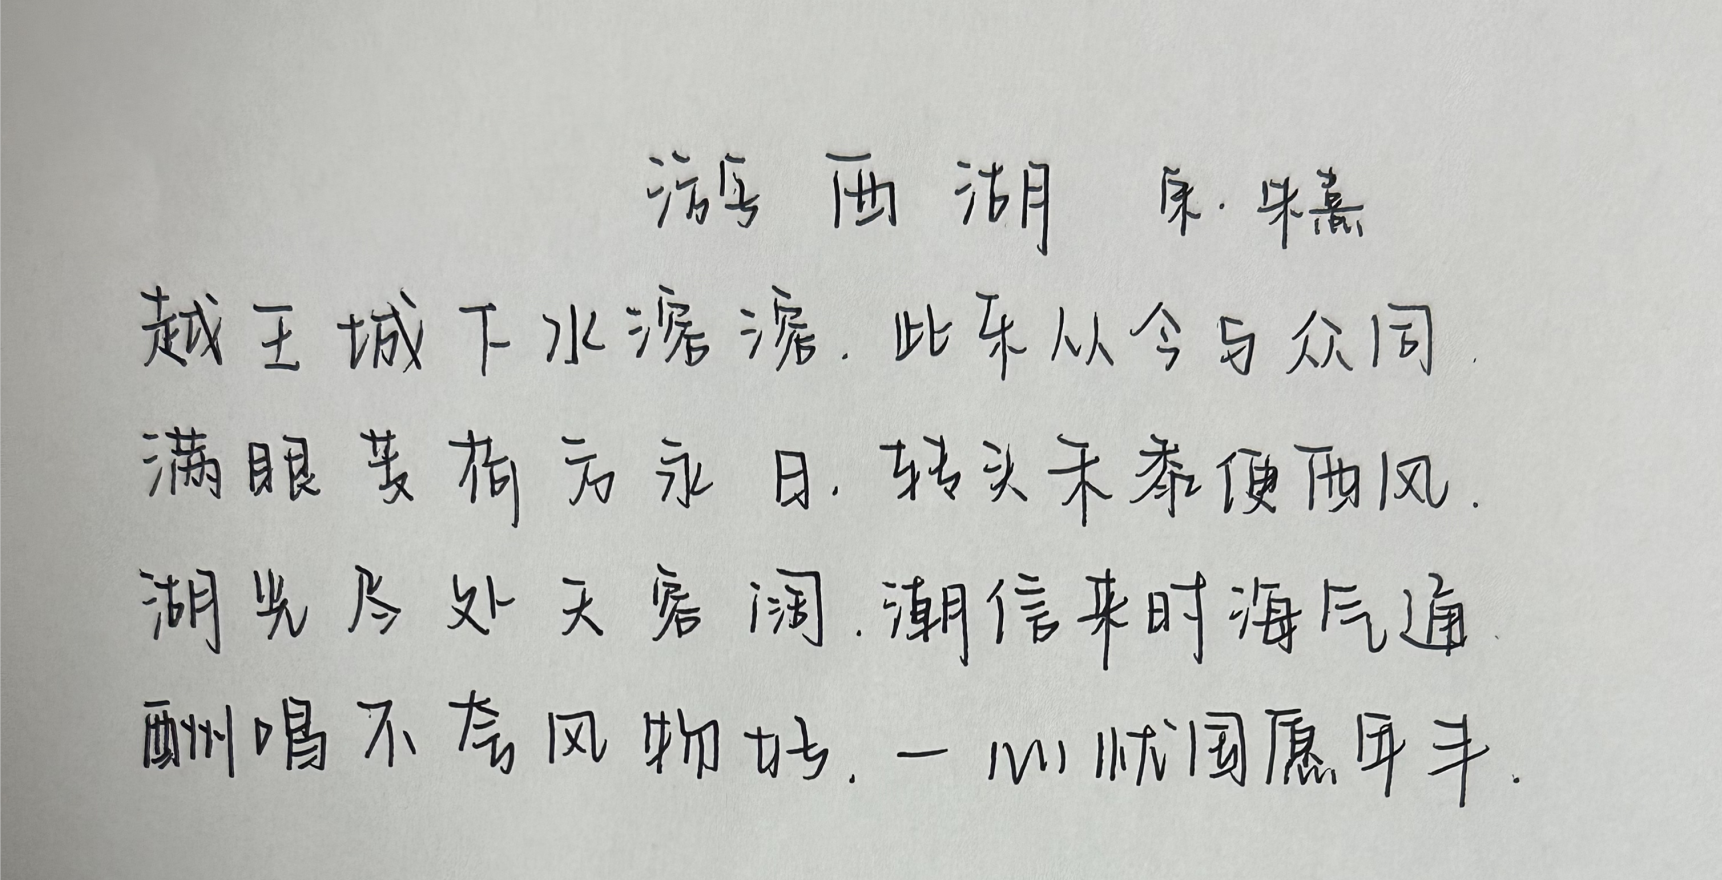 游西湖 宋·朱熹
越王城下水溶溶.此乐从今与众同.
满眼芰荷方永日.转头禾黍便西风.
湖光尽处天容阔.潮信来时海气通.
酬唱不夸风物好.一心忧国愿年丰.